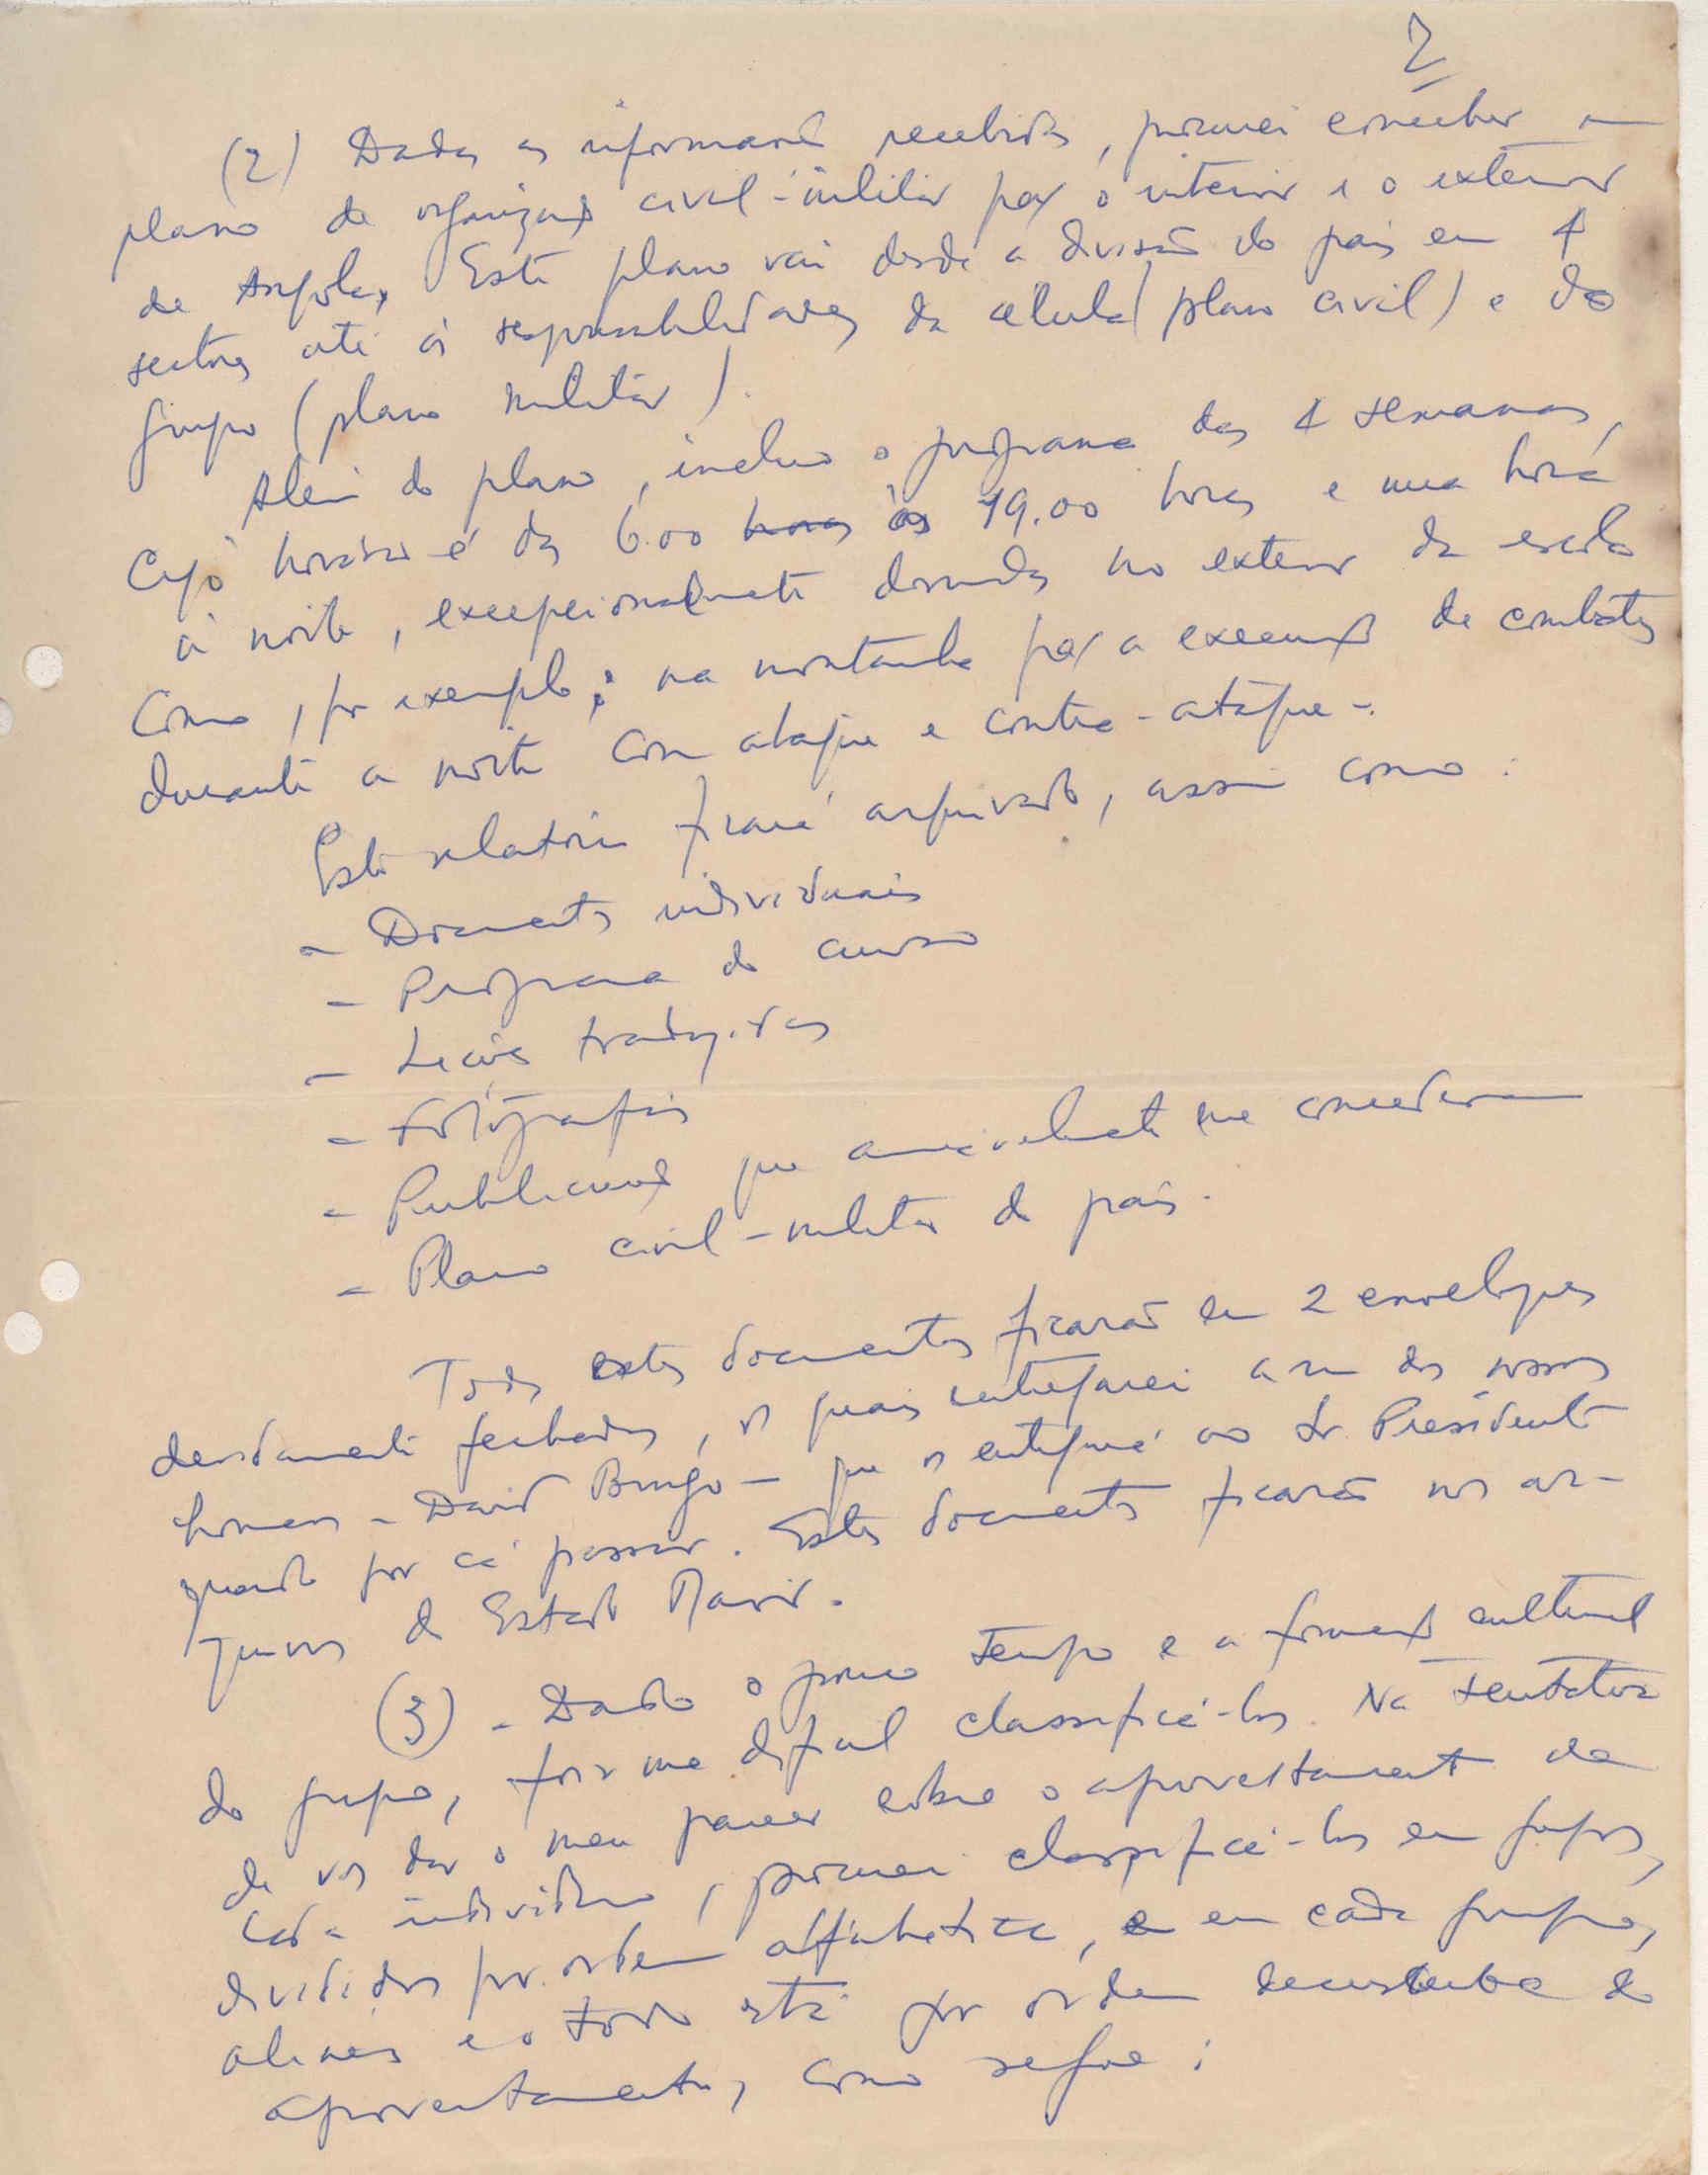 2
(2) Dadas as informações recebidas, procurei conceber um
plano de organização civil-militar para o interior e o exterior
de Angola, Este plano vai desde a divisão do país em 4
sectores até às responsabilidades da célula (plano civil) e do
grupo (plano militar).
Além do plano, incluo o programa das 4 semanas,
cujo horário é das 6.00 horas às 19.00 horas e uma hora
à noite, excepcionalmente no exterior da escola
como, por exemplo: na montanha para a execução de combates
durante a noite com ataque e contra-ataque-.
Este relatório ficará arquivado, assim como:
- Documentos individuais
- Programa do curso
- Lições traduzidas
- Fotografias
- Publicações que amavelmente me concederam
- Plano civil-militar do país.
Todos estes documentos ficarão em 2 envelopes
devidamente fechados, os quais entregarei a um dos nossos
homens - David Bungo - que os entregará ao Sr. Presidente
quando por cá passar. Estes documentos ficarão nos ar-
quivos do Estado Maior.
(3) - Dado o pouco tempo e a formação cultural
do grupo, foi-me difícil classificá-los. Na tentativa
de vos dar o meu parecer sobre o aproveitamento de
cada indivíduo, procurei classificá-los em grupos,
divididos por ordem alfabética, e em cada grupo,
alíneas e o todo está por ordem decrescente do
aproveitamento, como segue: